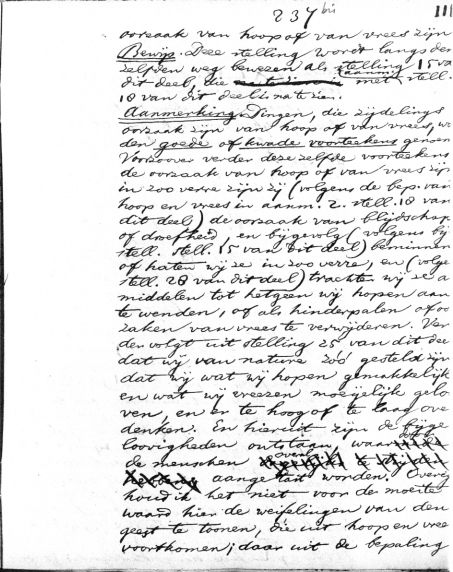 237 bis
III
oorzaak van hoop of van vrees zijn
Bewijs. Deze stelling wordt langs den
zelfden weg bewezen als stelling 15 va
dit deel, die aanm. met stell.
18 van dit deel is na te zien.
Aanmerking. Dingen, die zijdelings
oorzaak zijn van hoop of van vrees, wo
den goede of kwade voorteekens genoem
Voorzoover verder deze zelfde voorteekens
de oorzaak van hoop of van vrees zijn
in zoo verre zijn zij (volgens de bep. van
hoop en vrees in aanm. 2. stell. 18 van
dit deel) de oorzaak van blijdschap
of droefheid, en bijgevolg (volgens bij
stell. stell. 15 van dit deel) beminnen
of haten wij ze in zoo verre, en (volge
stell. 28 van dit deel) trachten wij ze a
middelen tot hetgeen wij hopen aan
te wenden, of als hinderpalen of oo
zaken van vrees te verwijderen. Ver
der volgt uit stelling 25 van dit dee
dat wij van nature zóó gesteld zijn
dat wij wat wij hopen gemakkelijk
en wat wij vreezen moeijelijk gelo
ven, en er te hoog of te laag over
denken. En hieruit zijn de bijge
loovigheden ontstaan, waar
de menschen overal
aangetast worden. Overig
houd ik het niet voor de moeite
waard hier de weifelingen van den
geest te toonen, die uit hoop en vree
voortkomen; daar uit de bepaling